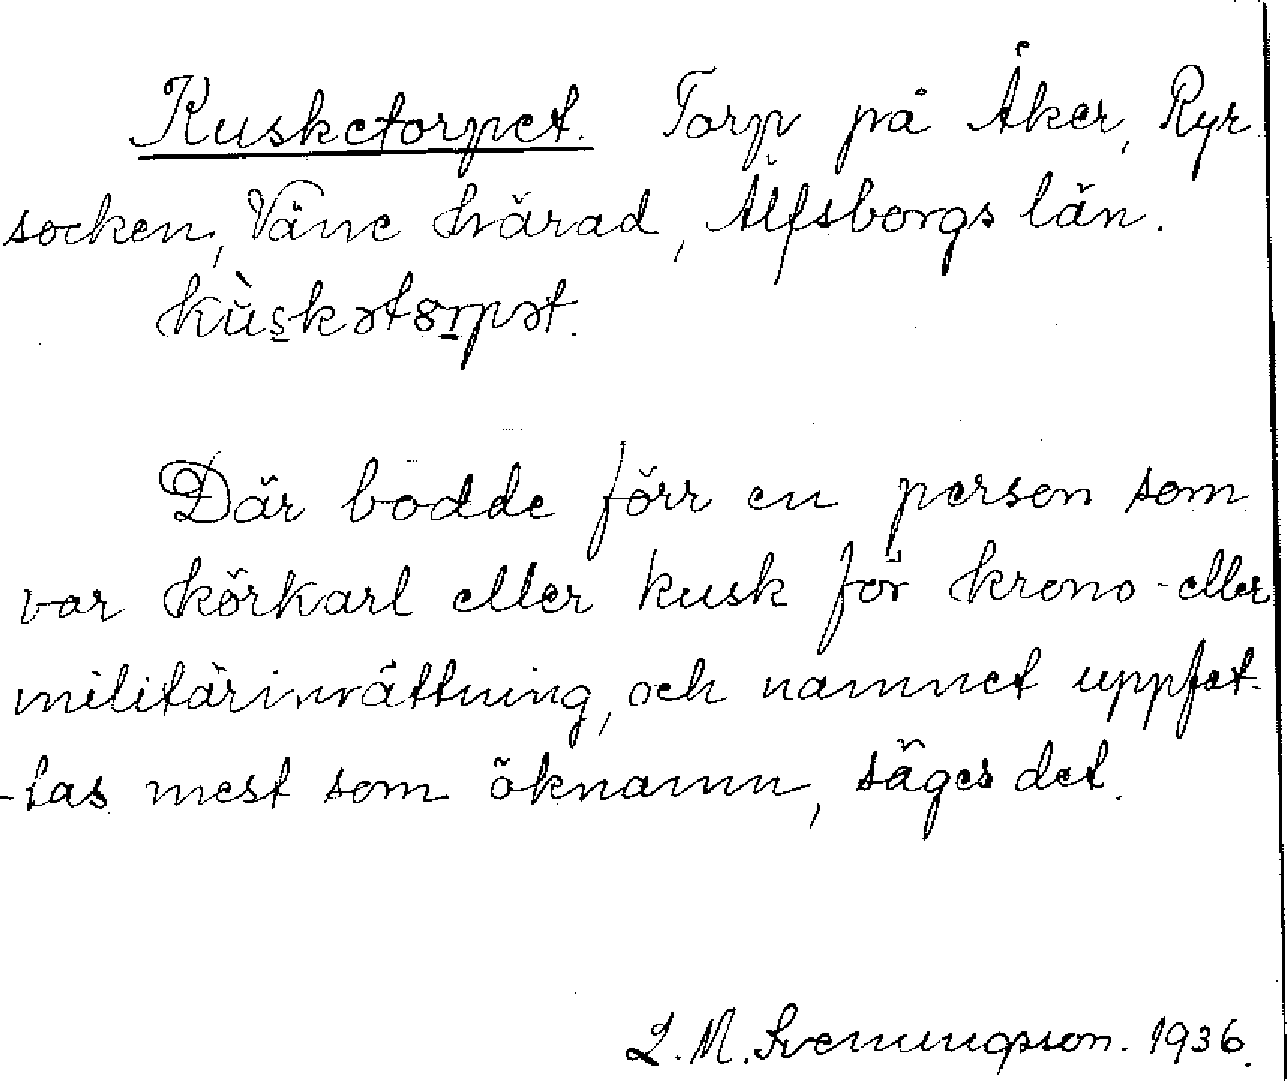 Kusketorpet. Torp på Åker, Ryr
socken, Väne härad, Älfsborgs län.
Kùs̲kətꝏɪ̲pət.
Där bodde förr en person som
var körkarl eller kusk för krono- eller
militärinrättning, och namnet uppfat-
-tas mest som öknamn, säges det.
L. M. Svenungsson. 1936.